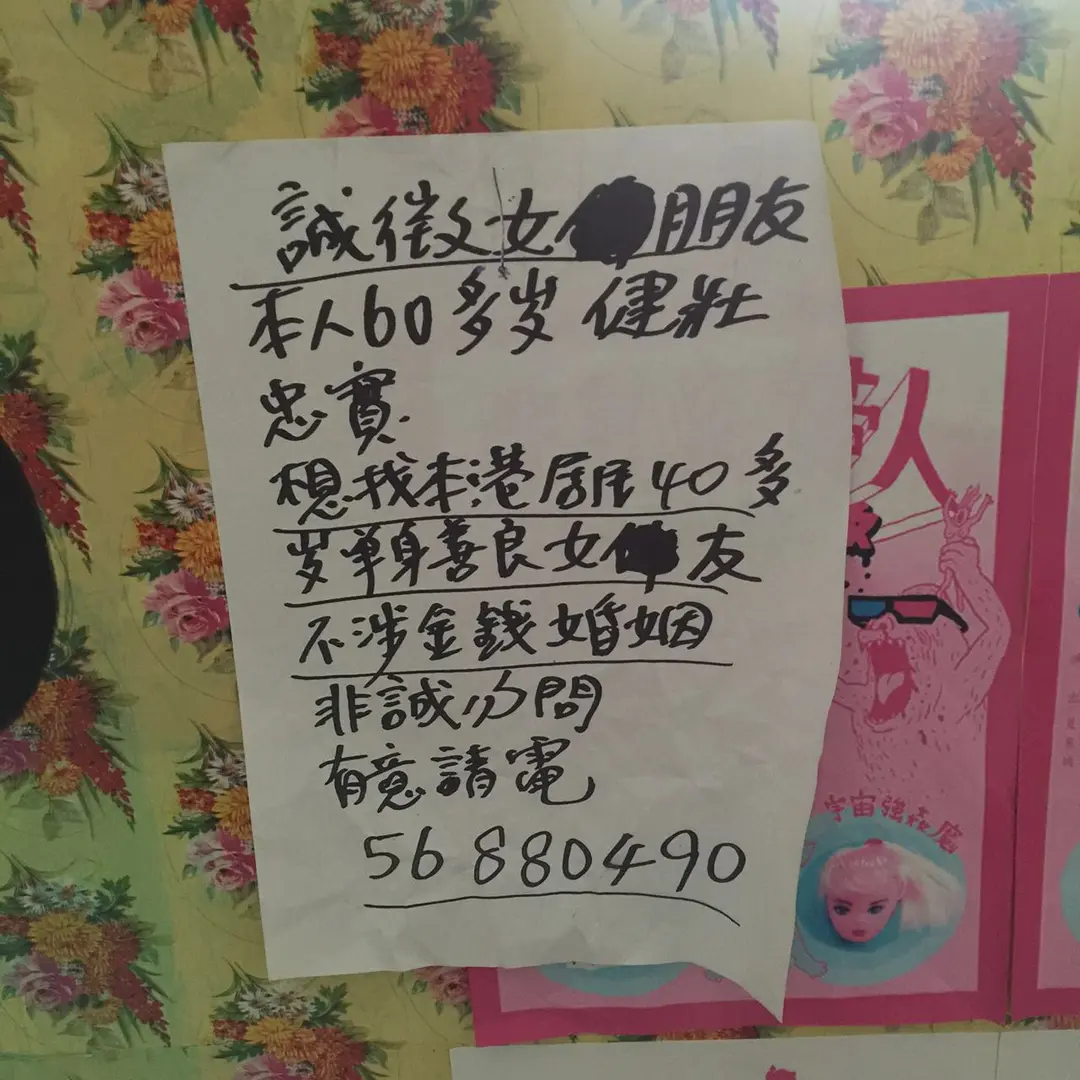 誠徵女朋友
本人60多岁 健壯
忠實
想找本港居民40多
岁單身善良女友
不涉金錢婚姻
非誠勿問
有意請電
56 880490
人
宇宙強屍魔